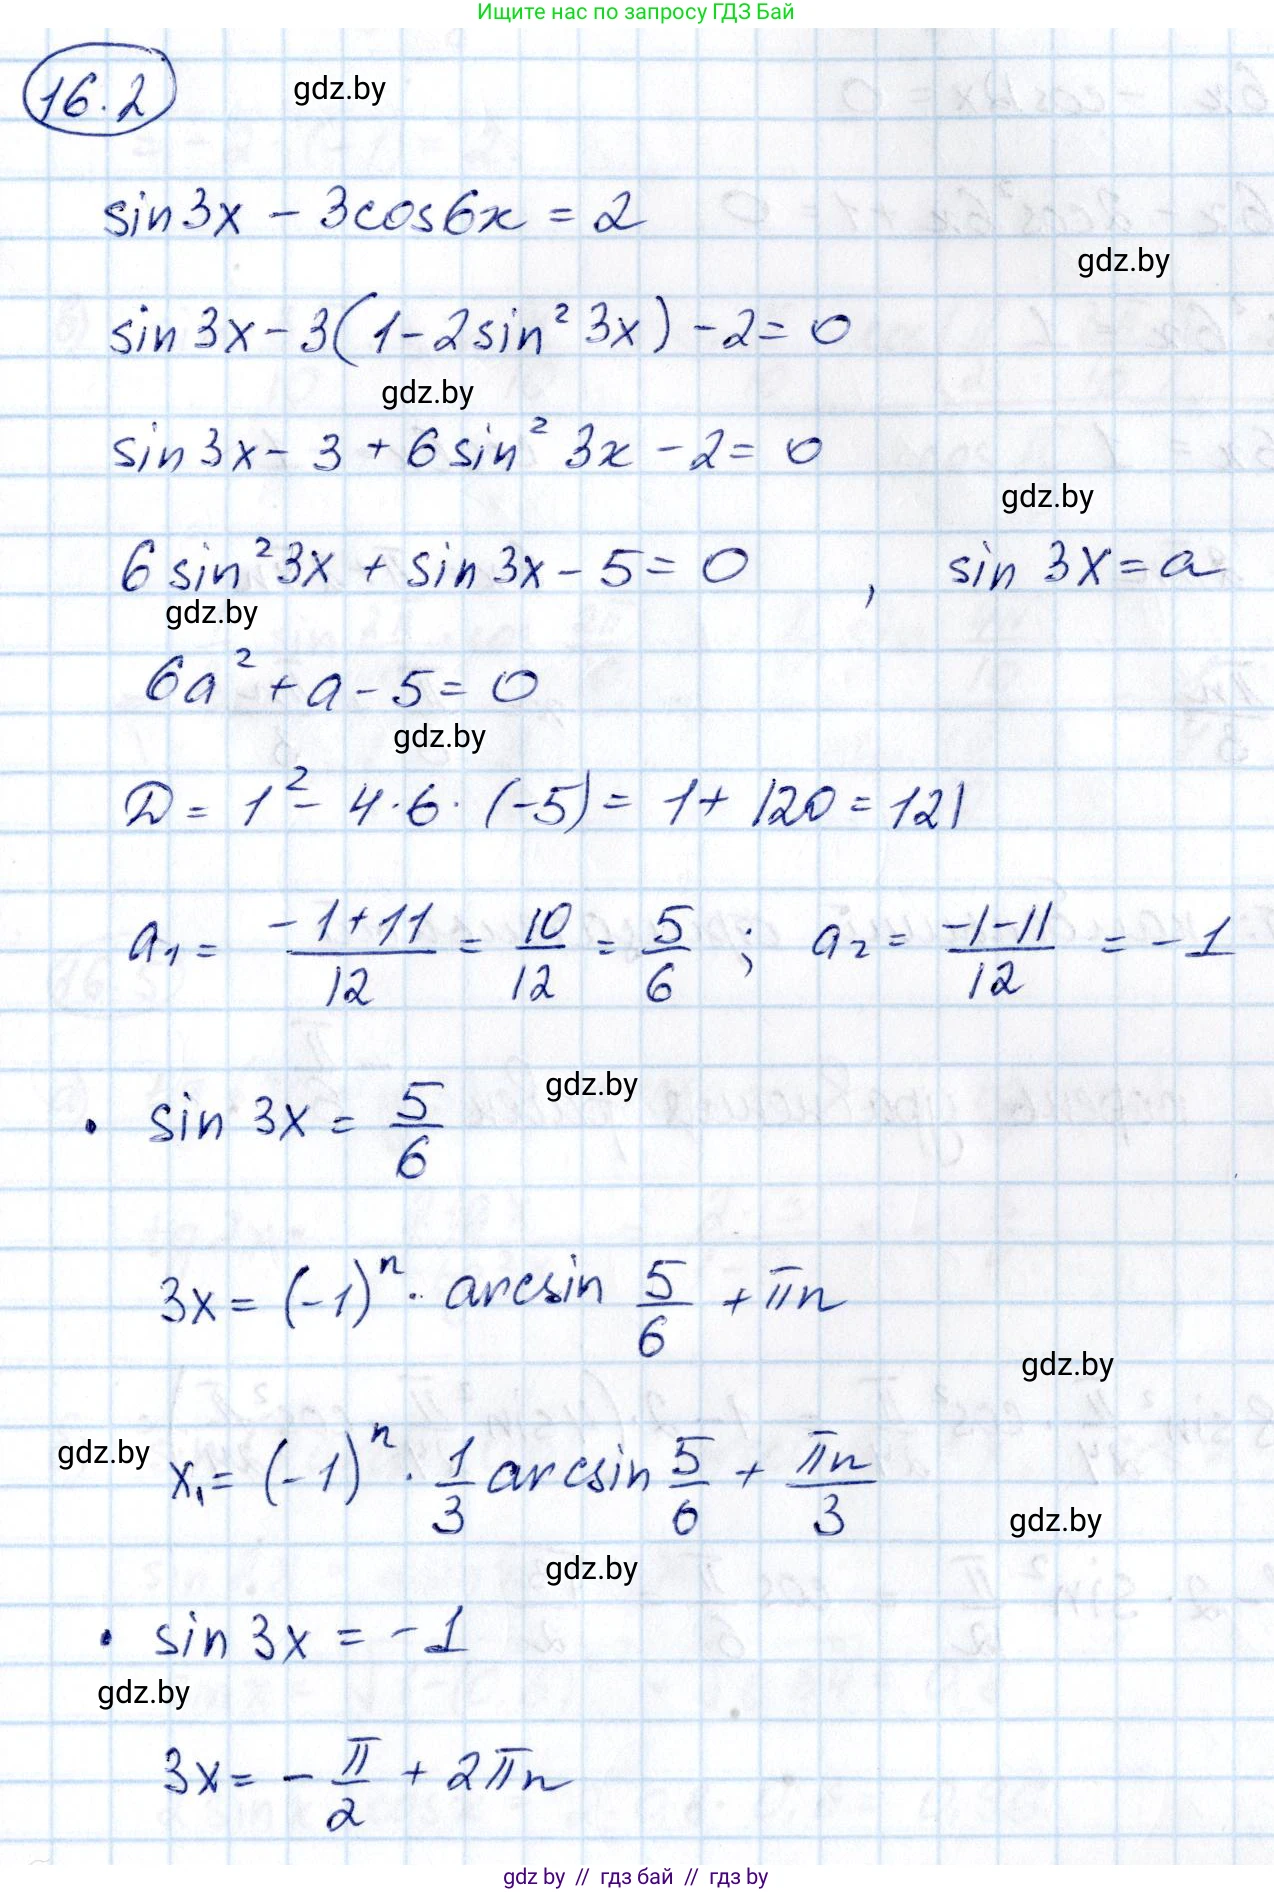 Ищите нас по запросу ГДЗ Бай
16.2
gdz.by
sin3x - 3cos6x = 2
gdz.by
sin 3x - 3(1 - 2sin² 3x) - 2 = 0
gdz.by
sin 3x - 3 + 6 sin² 3x - 2 = 0
gdz.by
6 sin² 3x + sin 3x - 5 = 0 , sin 3x = a
gdz.by
6a² + a - 5 = 0
gdz.by
D = 1² - 4·6·(-5) = 1 + 120 = 121
a₁ = (-1+11)/12 = 10/12 = 5/6 ; a₂ = (-1-11)/12 = -1
gdz.by
• sin 3x = 5/6
3x = (-1)ⁿ · arcsin 5/6 + πn
gdz.by
gdz.by
x₁ = (-1)ⁿ · 1/3 arcsin 5/6 + πn/3
gdz.by
gdz.by
• sin 3x = -1
gdz.by
3x = - π/2 + 2πn
gdz by // гдз бай // гдз by